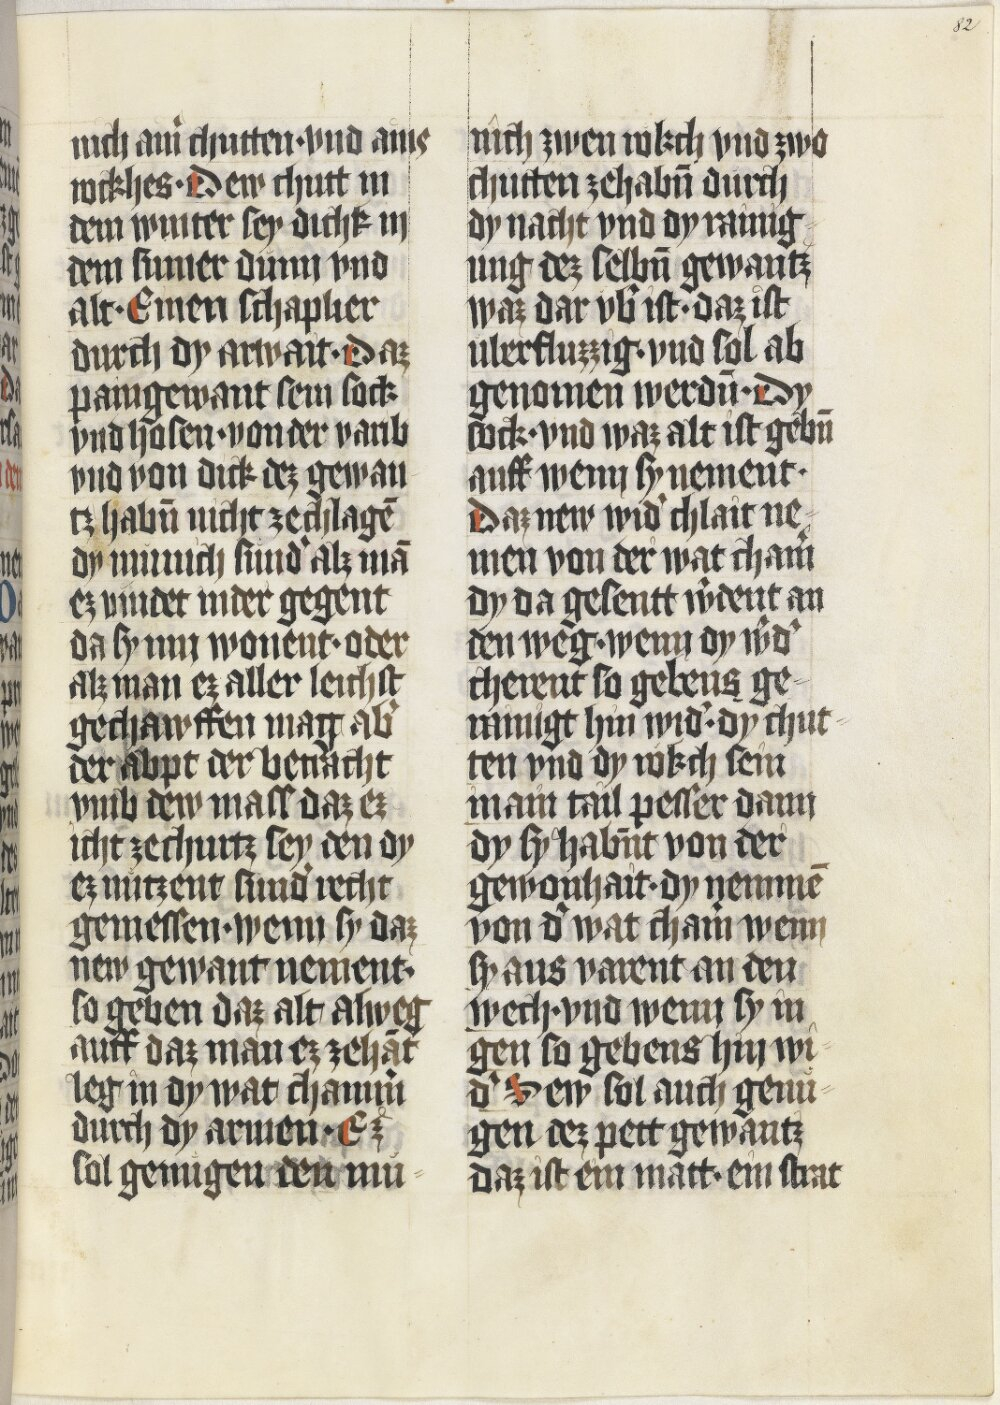 82
nich ainr chutten·vnd ains
rokches·Dew chutt in
dem winter sey dichk in
dem sumer dünn vnd
alt·Einen schaplier
durch dy arwait·Daz
paingewant sein sock
vnd hosen·von der varib
vnd von dick dez gewan
tz habn̄ nicht zechlagē
dy münich sund᾽ alz mā
ez vindet in der gegent
da sy inn wonent·oder
alz man ez aller leichst
gechawffen mag ab᾽
der abpt der betracht
vmb dew mass daz ez
icht zechurtz sey den dy
ez nützent sund᾽ recht
gemessen·wenn sy daz
new gewant nement·
so geben daz alt alweg
auff daz man ez zehāt
leg in dy wat chamm᾽
durch dy armen·Ez
sol genügen den mü-
nich zwen rokch vnd zwo
chutten zehabn̄ durch
dy nacht vnd dy rainig-
ung dez selbn̄ gewantz
waz dar vb᾽ ist·daz ist
überfluzzig·vnd sol ab
genomen werdn̄·Dy
sock·vnd waz alt ist gebn̄
auff wenn sy nement·
Daz new wid᾽ chlait ne-
men von der wat cham᾽
dy da gesentt w᾽dent an
den weg·wenn dy wid᾽
cherent so gebens ge-
rainigt hin wid᾽·dy chut-
ten vnd dy rokch sein
inain tail pesser dann
dy sy habn̄t von der
gewonhait·dy nemmē
von d᾽ wat cham᾽ wenn
sy aus varent an den
wech·vnd wenn sy in
gen so gebens hin wi-
d᾽ Dew sol auch genü-
gen dez pett gewantz
daz ist ein matt·ein strat